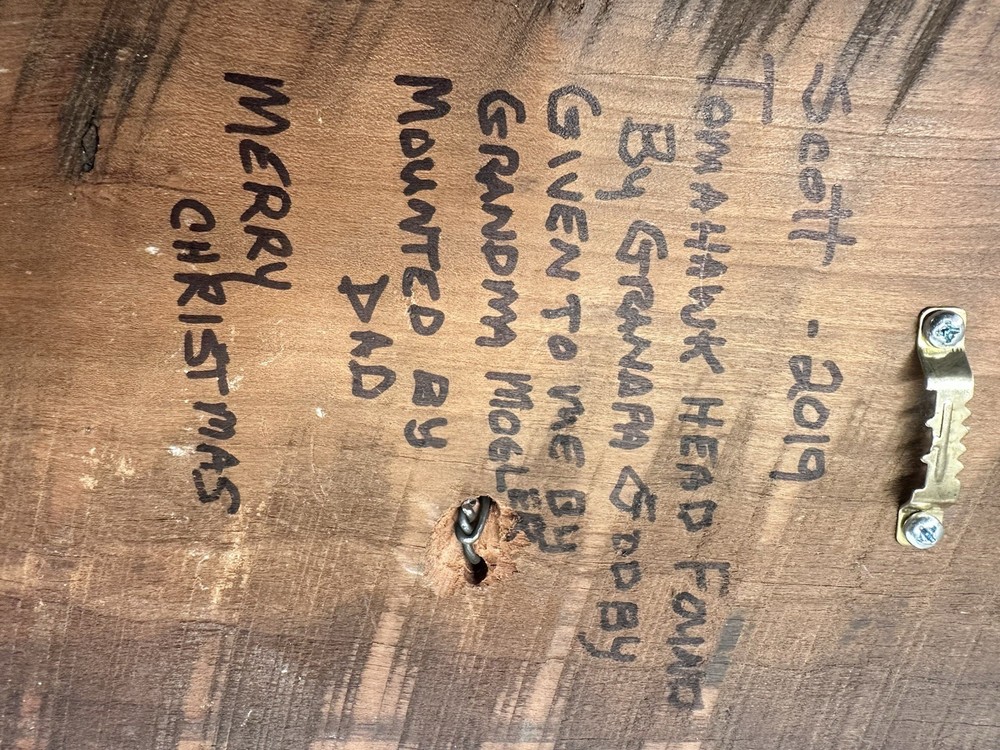 Scott - 2019
T
TOMAHAWK HEAD FOUND
By GRANDPA
GIVEN TO ME BY
GRANDMA MOGLER
MOUNTED By
DAD
MERRY
CHRISTMAS